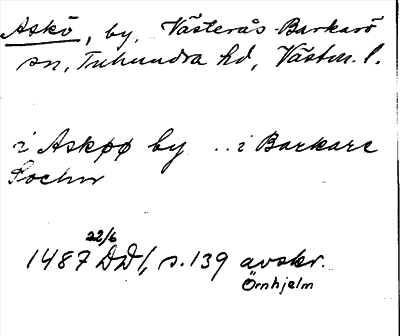 Askö, by, Västerås-Barkarö
sn, Tuhundra hd, Västm. l.
i Askøø by .. i Barkare
Sochn
22/6
1487 DD1, s. 139 avskr.
Örnhjelm